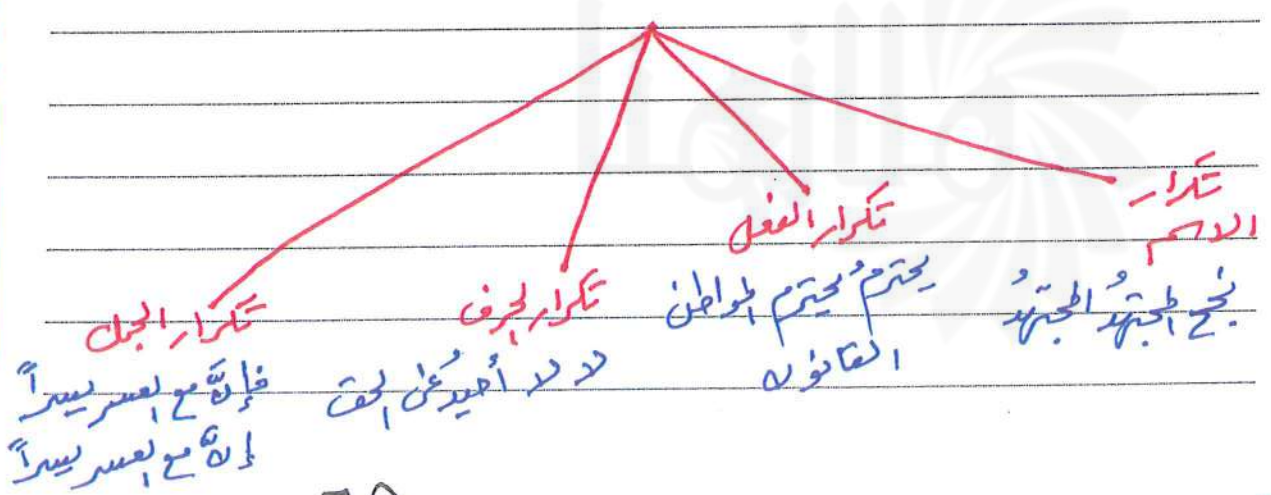 تكرار
الاسم
نجح المجتهدُ المجتهدُ
تكرار الفعل
يحترمُ يحترم المواطن
القانون
تكرار الحرف
لا لا أحيدُ عن الحق
تكرار الجمل
فإنَّ مع العسر يسراً
إنَّ مع العسر يسراً